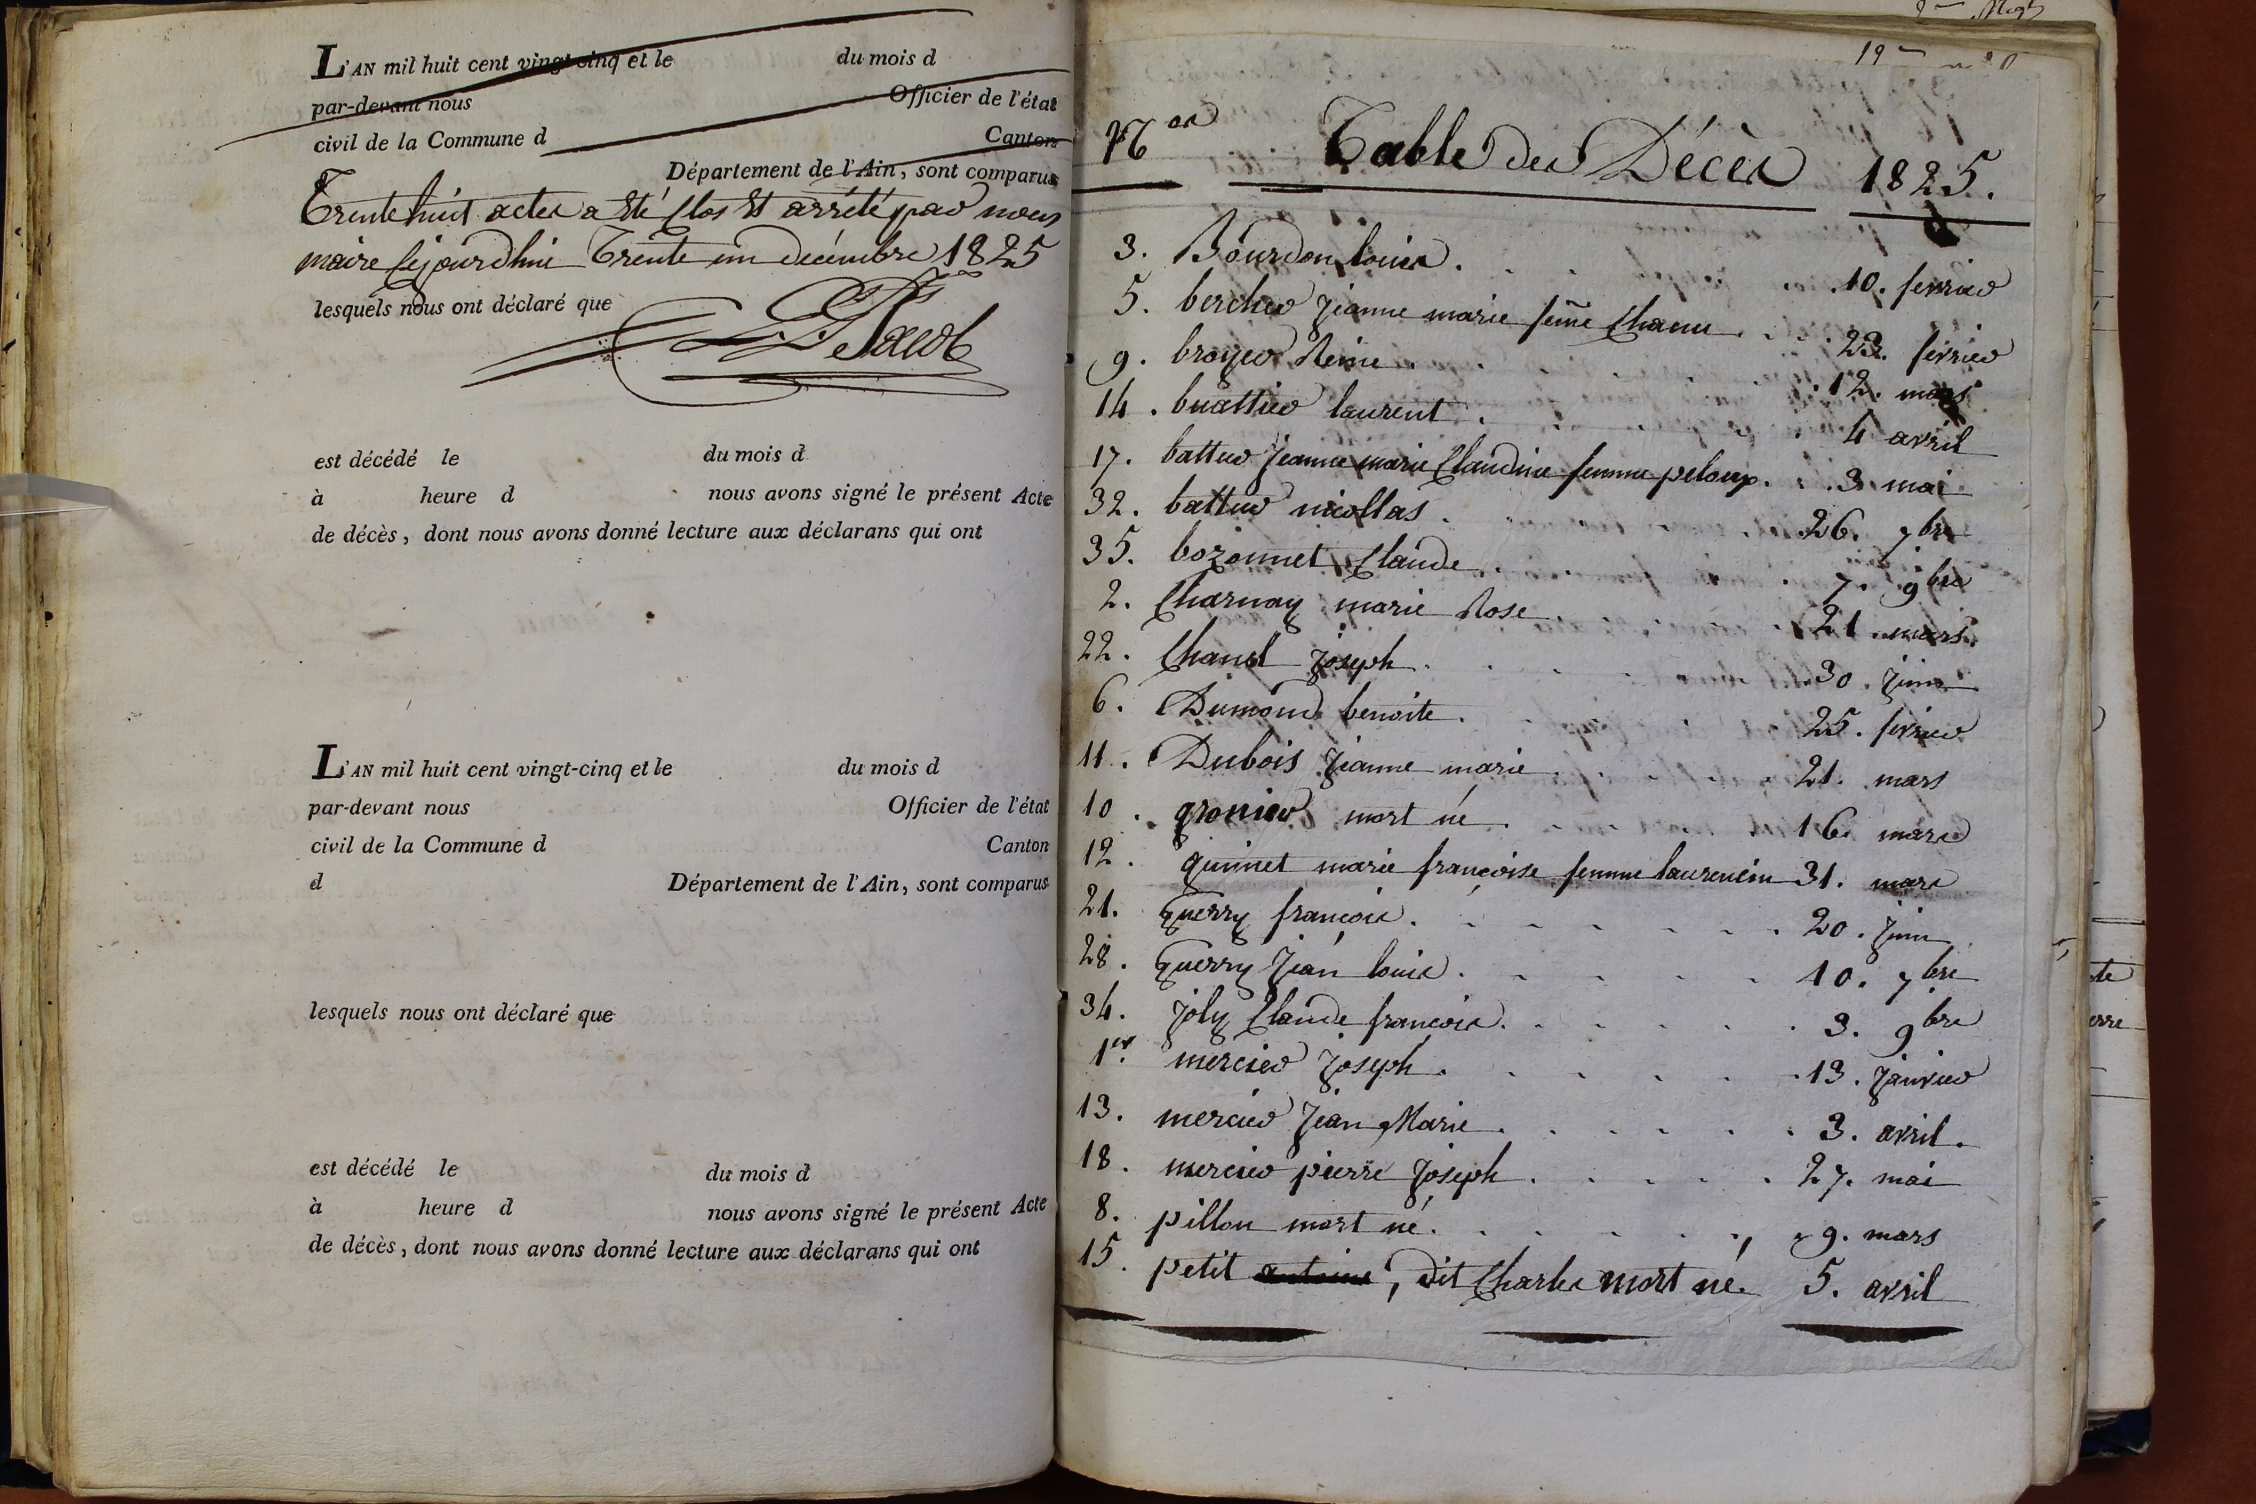 L'AN mil huit cent vingt-cinq et le du mois d
par-devant nous Officier de l'état
civil de la Commune d Canton
Département de l'Ain, sont comparus
Trente huit actes a été clos et arrêté par nous
maire cejourdhui Trente un décembre 1825
lesquels nous ont déclaré que
est décédé le du mois d
à heure d nous avons signé le présent Acte
de décès, dont nous avons donné lecture aux déclarans qui ont
L'AN mil huit cent vingt-cinq et le du mois d
par-devant nous Officier de l'état
civil de la Commune d Canton
d Département de l'Ain, sont comparus
lesquels nous ont déclaré que
est décédé le du mois d
à heure d nous avons signé le présent Acte
de décès, dont nous avons donné lecture aux déclarans qui ont
Nos Table des Décès 1825.
3. Bourdon louis . 10. fevrier
5. bercher jeanne marie feme Chanu . 23. fevrier
9. broyer Reine . 12. mars
14. buattier laurent . 4 avril
17. battur jeanne marie Claudine femme peloup . 3 mai
32. battur nicollas . 26. 7bre
35. bozonnet Claude . 7. 9bre
2. Charnay marie Rose . 21 mars
22. Chanel joseph . 30. juin
6. Dumond benoite . 25. fevrier
11. Dubois jeanne marie . 21. mars
10. gronier mort né . 16. mars
12. guinet marie françoise femme laurencin 31. mars
21. Guerry françois . 20. juin
28. Guerry jean louis . 10. 7bre
34. joly Claude francois . 3. 9bre
1er mercier joseph . 13. janvier
13. mercier jean Marie . 3. avril.
18. mercier pierre joseph . 27. mai
8. pillon mort né . 9. mars
15. petit antoine, dit Charles mort né. 5. avril